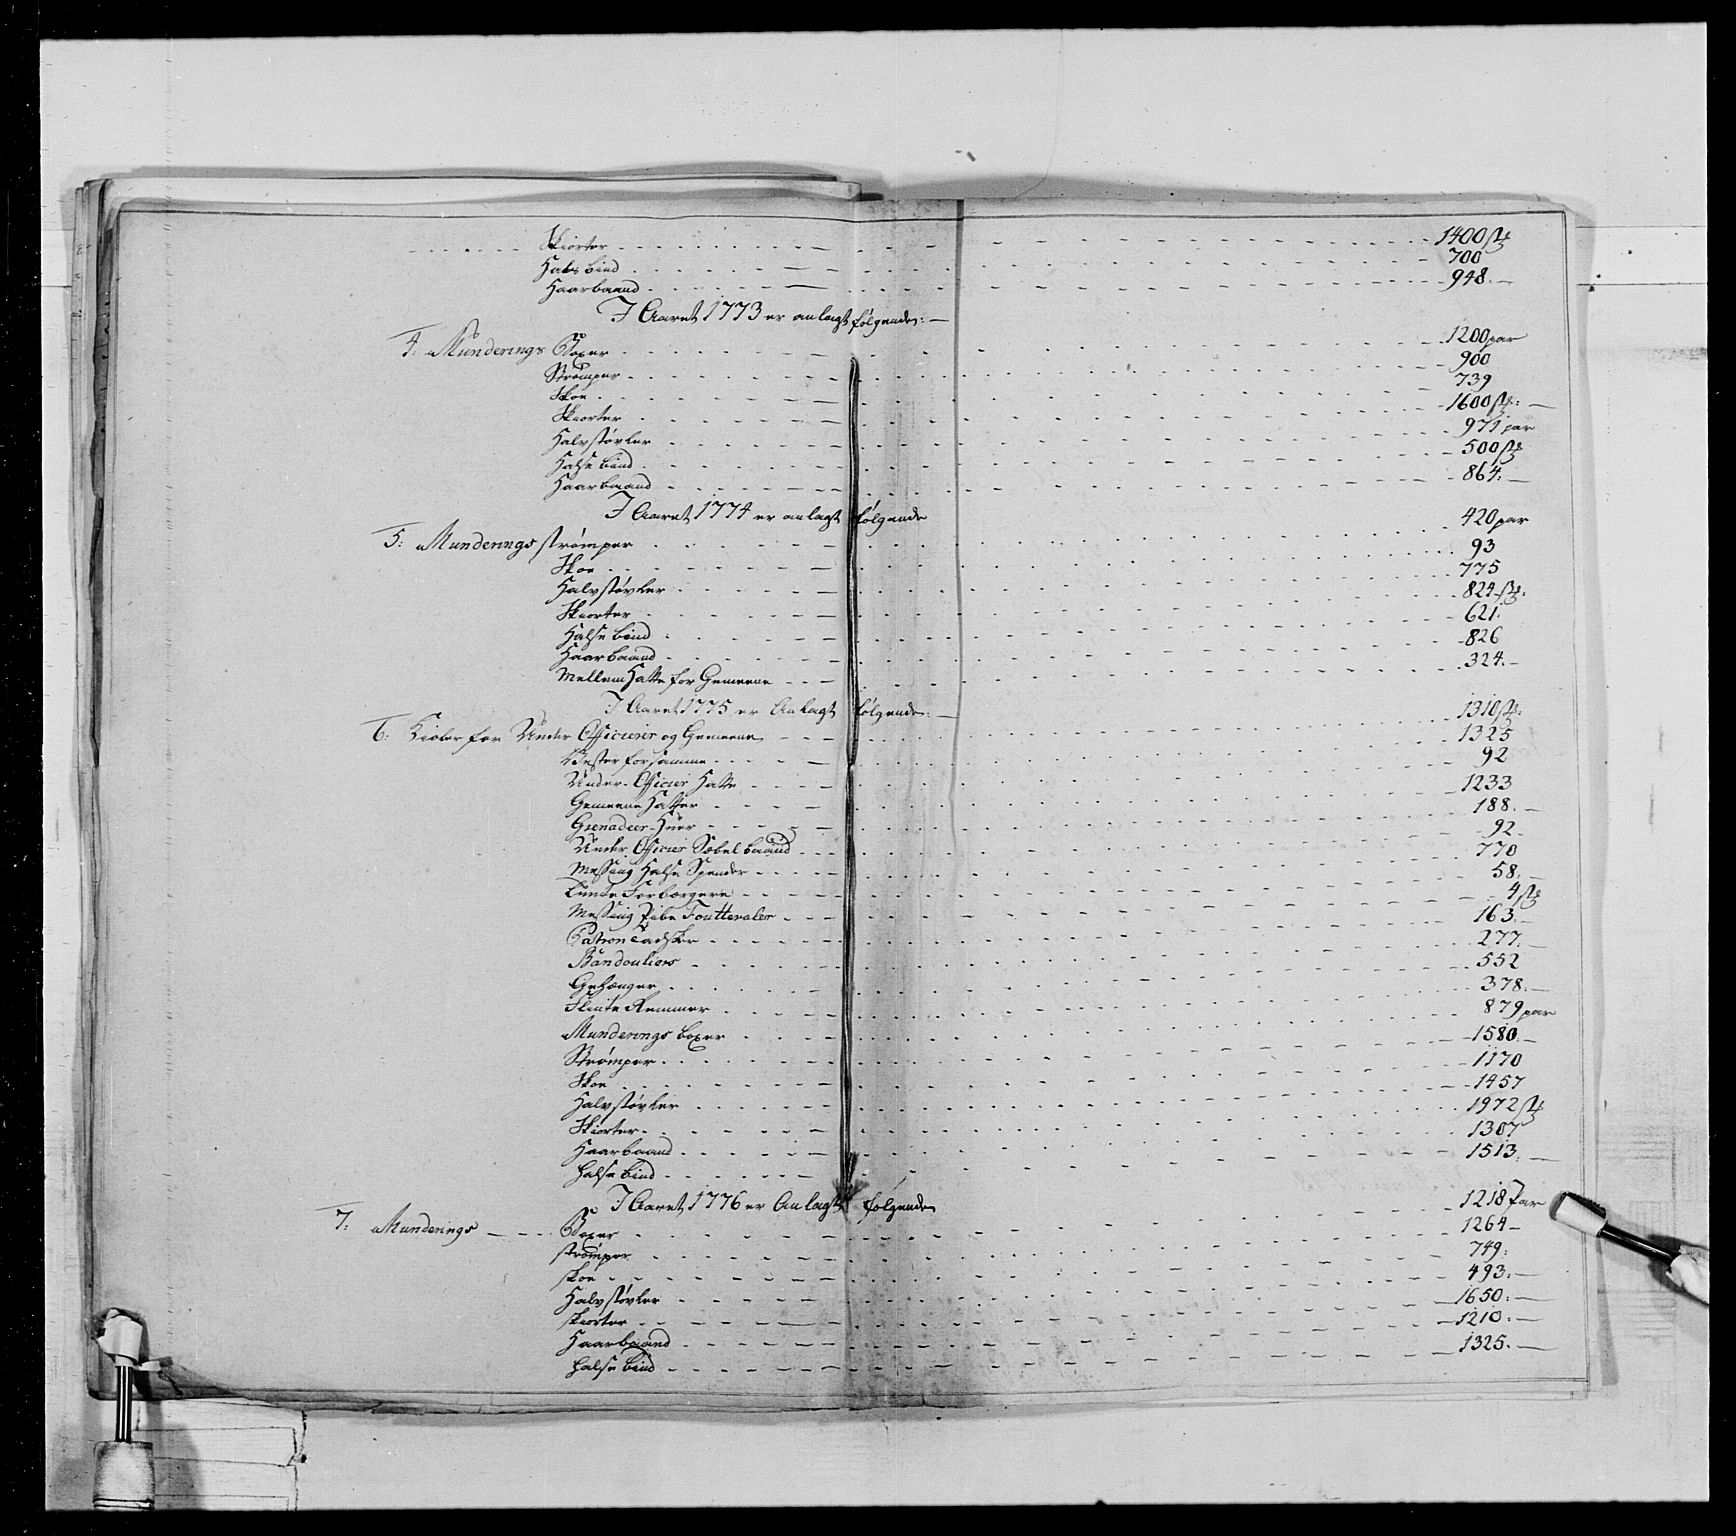 Skiorter 1400 stk
Halsbind 700
Haarbaand 948
I Aaret 1773 er anlagt følgende:
4: Munderings Boxer 1200 par
Strømper 900
Skoe 739
Skiorter 1600 stk:
Halvstøvler 971 par
Halsebind 500 stk
Haarbaand 864:
I Aaret 1774 er anlagt følgende
5: Munderings strømper 420 par
Skoe 93
Halvstøvler 775
Skiorter 824 stk:
Halsebind 621
Haarbaand 826
Mellem Hatte for Gemeene 324
I Aaret 1775 er Anlagt følgende:
6: Kioler for Under Officierer og Gemeene 1310 stk:
Vester for samme 1325
Under-Officier Hatte 92
Gemeene Hatter 1233
Grenadeer-Huer 188
Under Officier Sabel baand 92
Messing Halse Spender 770
Lunte Forbærgere 58
Messing Pibe Foutteraler 4 stk
Patron Tadsker 163
Bandouliers 277
Gehænger 552
Flinte Remmer 378
Munderings boxer 879 par
Strømper 1580
Skoe 1170
Halvstøvler 1457
Skiorter 1972 stk
Haarbaand 1307
halsebind 1513
I Aaret 1776 er Anlagt følgende
7: Munderings Boxer 1218 Par
strømper 1264
skoe 749:
Halvstøvler 493:
skiorter 1650:
Haarbaand 1210:
halsebind 1325.